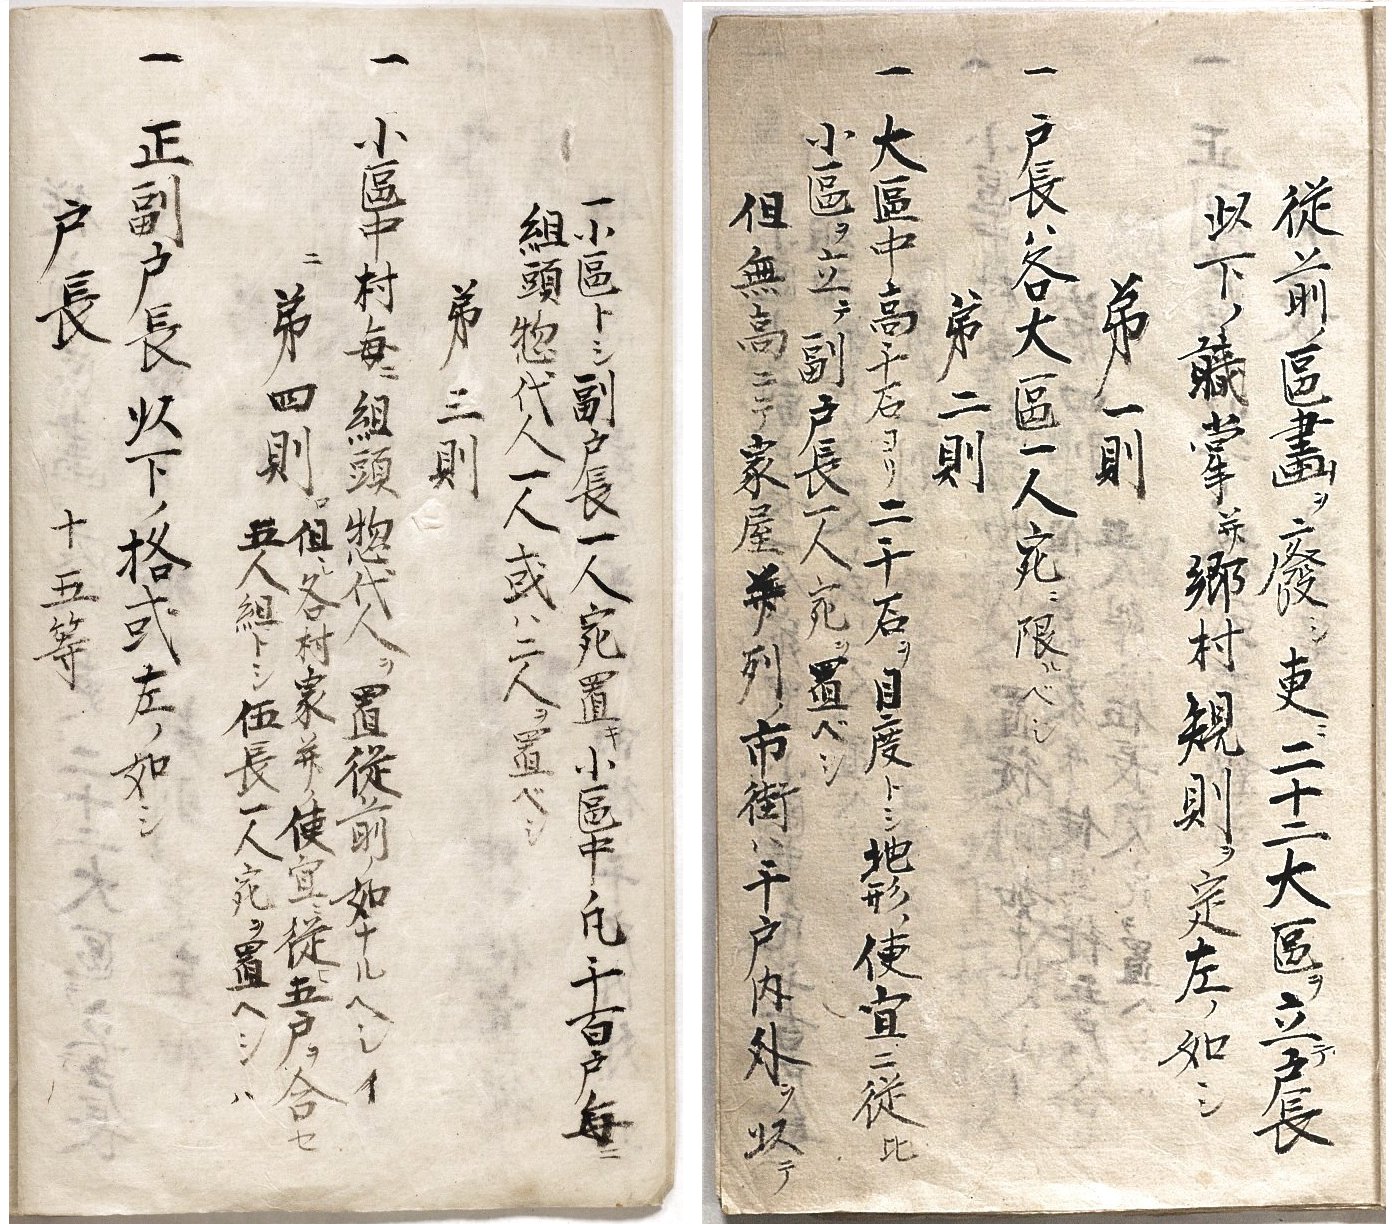 従前ノ區畫ヲ廢シ更ニ二十二大區ヲ立テ戸長
以下ノ職掌并郷村規則ヲ定左ノ如シ
弟一則
一 戸長ハ各大區一人宛ニ限ルベシ
弟二則
一 大區中高千石ヨリ二千石ヲ目度トシ地形ノ使宜ニ従比
小區ヲ立テ副戸長一人宛ヲ置ベシ
但無高ニテ家屋并列ノ市街ハ千戸内外ヲ以テ
一小區トシ副戸長一人宛置キ小區中凢千百戸毎ニ
組頭惣代人一人或ハ二人ヲ置ベシ
弟三則
一 小區中村毎ニ組頭惣代人ヲ置従前ノ如ナルヘシイ
ニ弟四則ロ但シ各村家并ノ使宜ニ従ヒ五戸ヲ合セ
五人組トシ伍長一人宛ヲ置ヘシハ
一 正副戸長以下ノ格式左ノ如シ
戸長 十五等